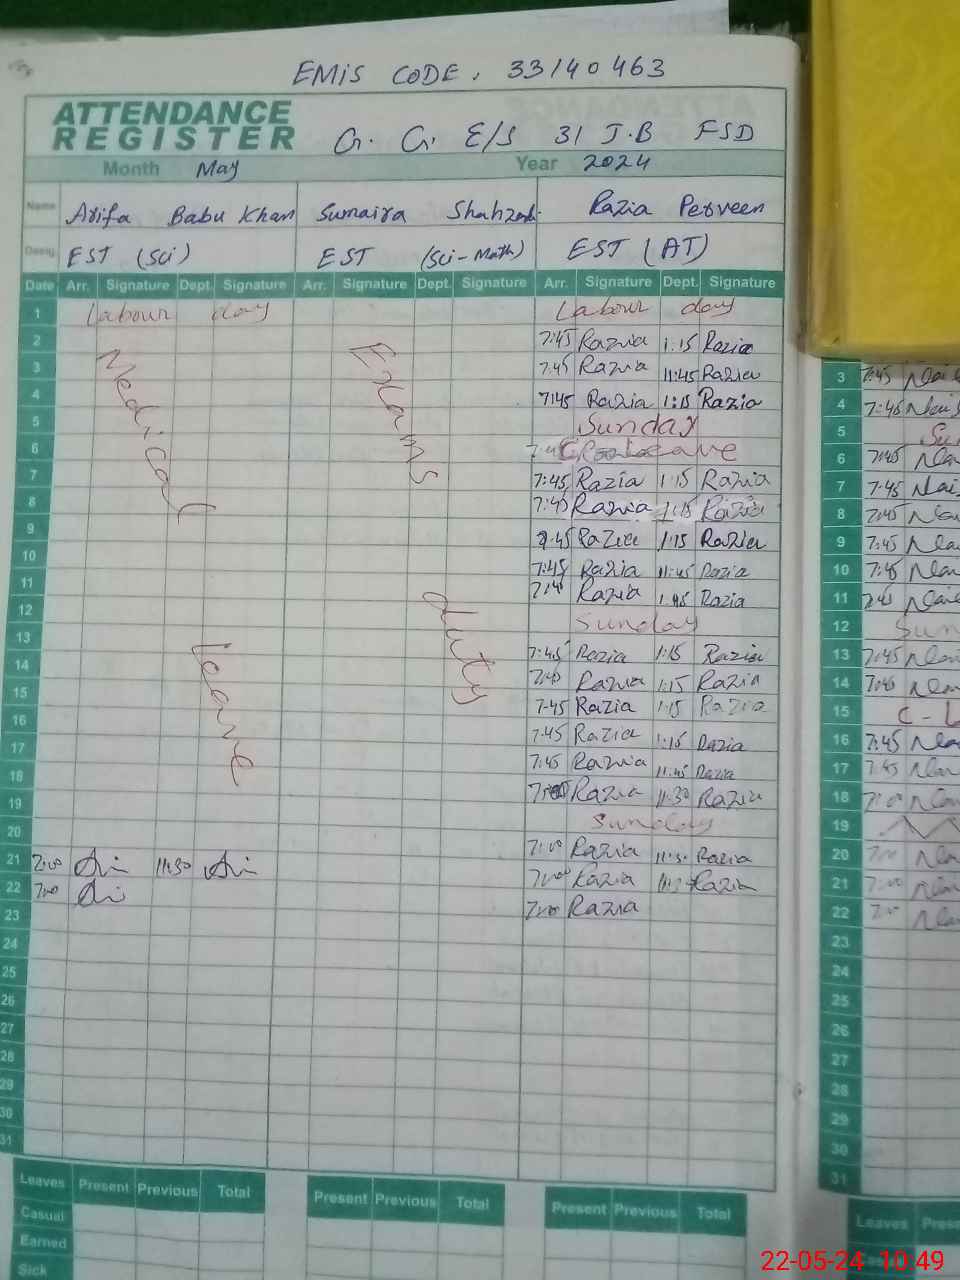 EMIS CODE. 33140463
ATTENDANCE REGISTER
G. G. E/S 31 J.B FSD
Month May Year 2024
Name Arifa Babu Khan Sumaira Razia Perveen
Desig EST (Sci) EST (Sci-Math) EST (AT)
Date Arr. Signature Dept. Signature Arr. Signature Dept. Signature Arr. Signature Dept. Signature
1 Labour day Labour day
2 7:45 Razia 1:15 Razia
3 7:45 Razia 11:45 Razia 3 7:45
4 7:45 Razia 1:15 Razia 4 7:45
5 Sunday 5
6 leave 6 7:45
7 7:45 Razia 1:15 Razia 7 7:45
8 7:45 Razia 1:15 Razia 8 7:45
9 7:45 Razia 1:15 Razia 9 7:45
10 7:45 Razia 11:45 Razia 10 7:45
11 7:45 Razia 1:45 Razia 11 7:45
12 Sunday 12
13 7:45 Razia 1:15 Razia 13 7:45
14 7:45 Razia 1:15 Razia 14 7:45
15 7:45 Razia 1:15 Razia 15
16 7:45 Razia 1:15 Razia 16 7:45
17 7:45 Razia 11:45 Razia 17 7:45
18 Razia 11:30 Razia 18 7:00
19 Sunday 19
20 7:00 Razia 11:30 Razia 20 7:00
21 7:00 11:30 7:00 Razia Razia 21 7:00
22 7:00 7:00 Razia 22 7:00
23 23
24 24
25 25
26 26
27 27
28 28
29 29
30 30
31 31
Medical leave
Exams duty
Leaves Present Previous Total Present Previous Total Present Previous Total Leaves
Casual
Earned
Sick
22-05-24 10:49